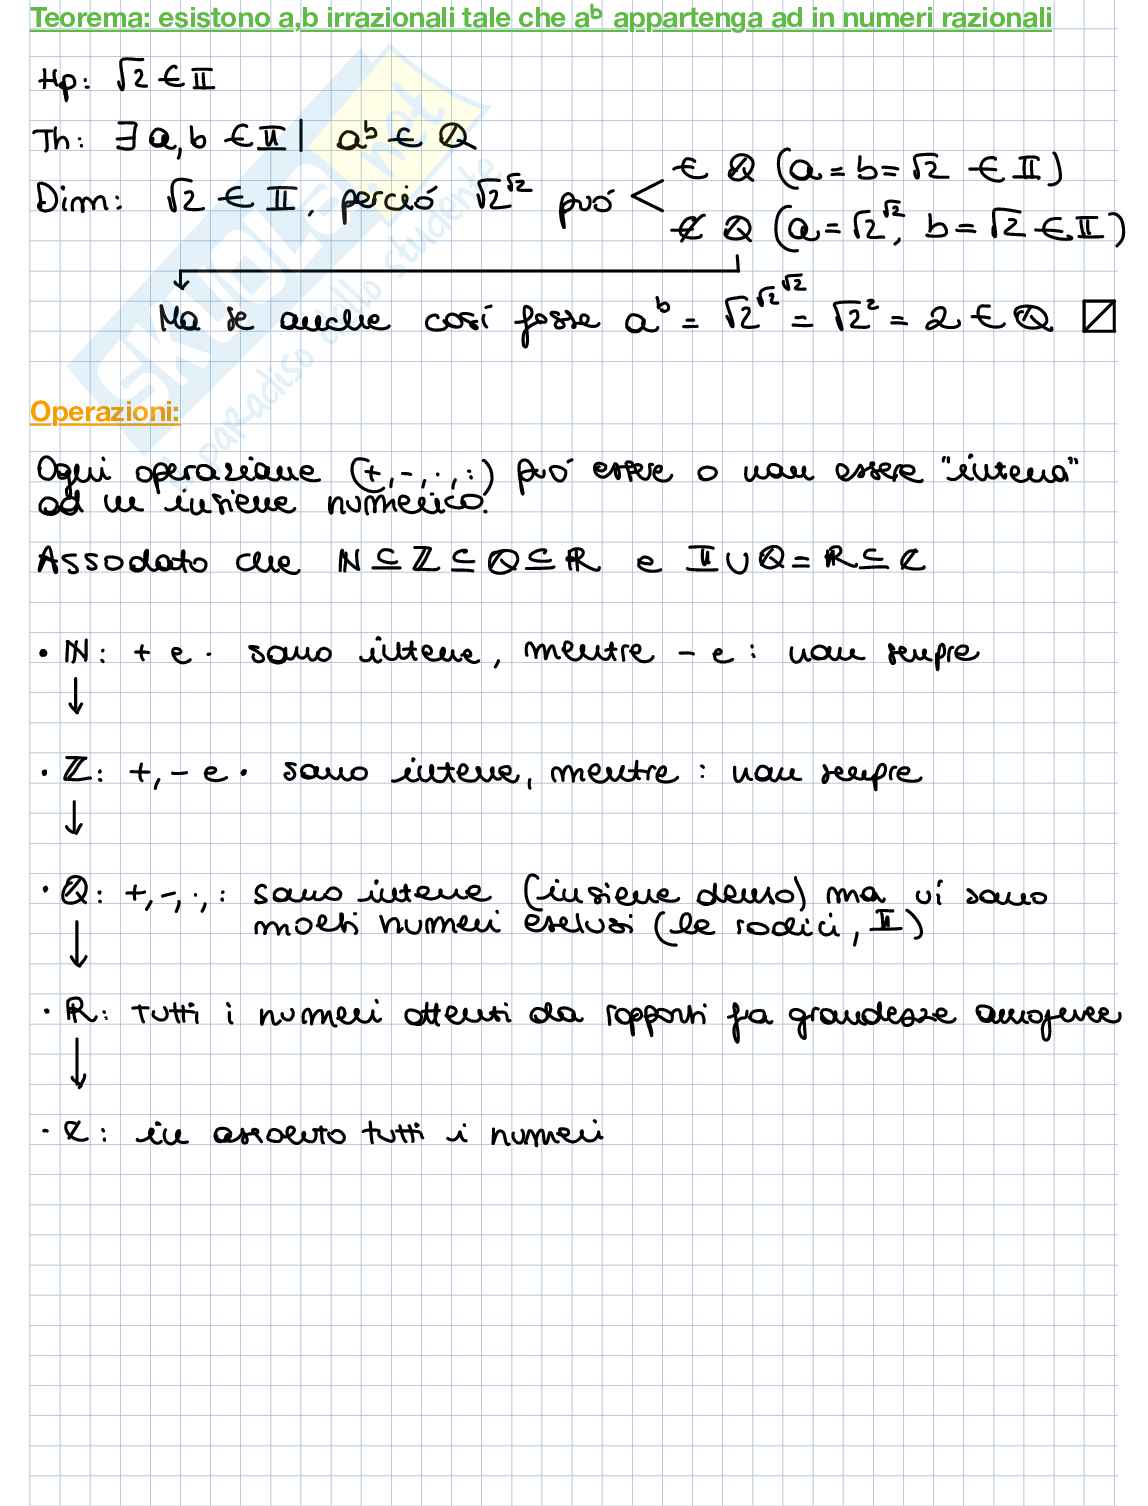 Teorema: esistono a,b irrazionali tale che aᵇ appartenga ad in numeri razionali
Hp: √2 ∈ 𝕀
Th: ∃ a,b ∈ 𝕀 | aᵇ ∈ ℚ
Dim: √2 ∈ 𝕀, perció √2^√2 puó < ∈ ℚ (a = b = √2 ∈ 𝕀)
∉ ℚ (a = √2^√2, b = √2 ∈ 𝕀)
Ma se anche cosí fosse aᵇ = √2^√2^√2 = √2² = 2 ∈ ℚ ☐
SKUOLA.net
paradiso dello studente
Operazioni:
Ogni operazione (+,-,·,:) puó essere o non essere "interna"
ad un insieme numerico.
Assodato che ℕ ⊆ ℤ ⊆ ℚ ⊆ ℝ e 𝕀 ∪ ℚ = ℝ ⊆ ℂ
• ℕ: + e · sono interne, mentre - e : non sempre
↓
• ℤ: +, - e · sono interne, mentre : non sempre
↓
• ℚ: +,-,·,: sono interne (insieme denso) ma vi sono
molti numeri esclusi (le radici, 𝕀)
↓
• ℝ: tutti i numeri ottenuti da rapporti fra grandezze omogenee
↓
• ℂ: in assoluto tutti i numeri